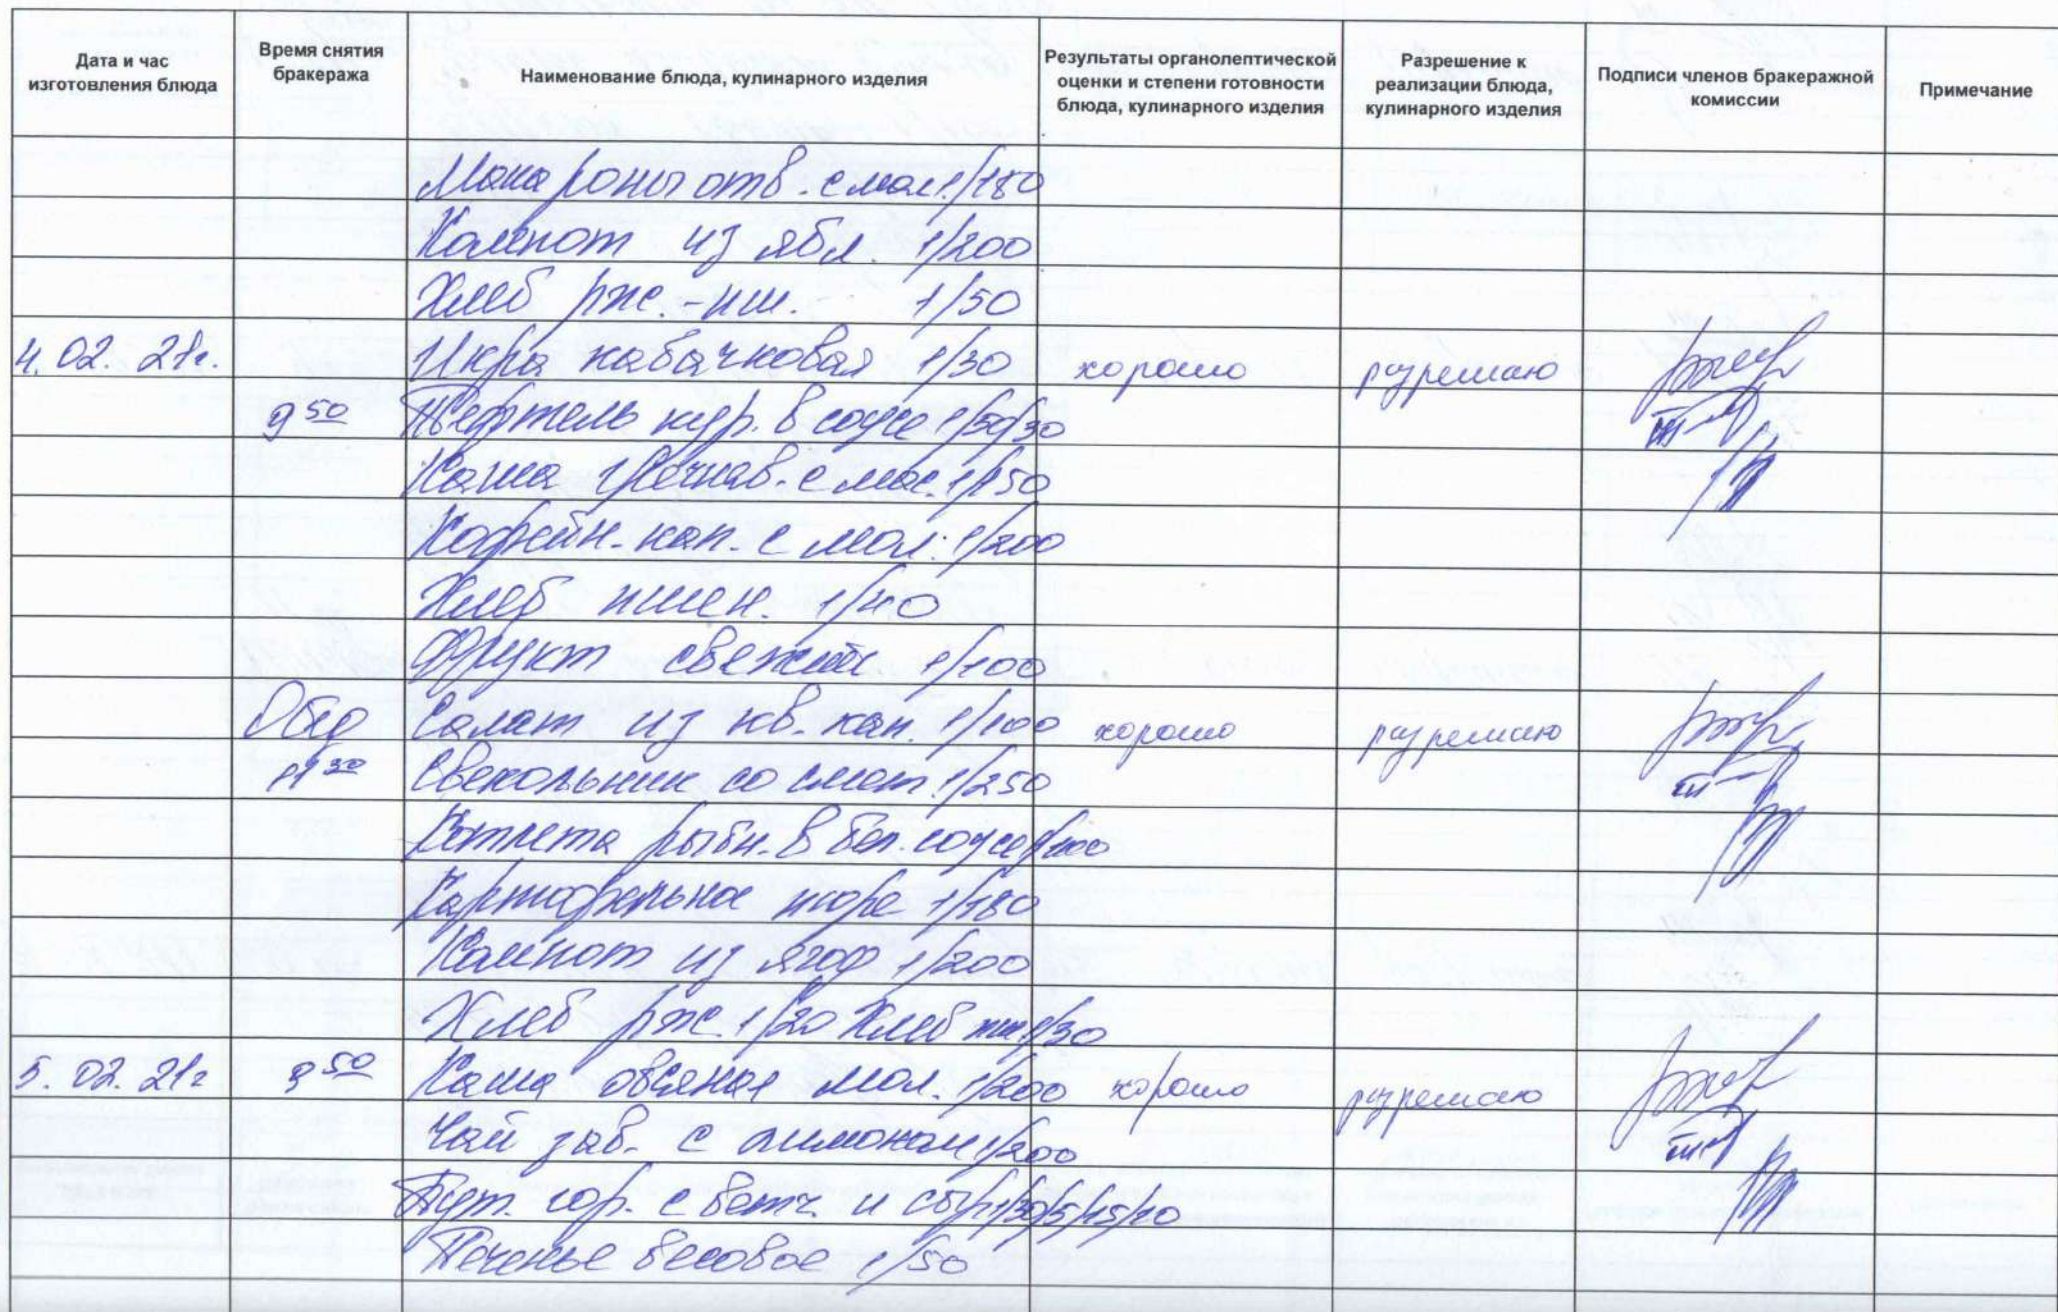 Дата и час изготовления блюда
Время снятия бракеража
Наименование блюда, кулинарного изделия
Результаты органолептической оценки и степени готовности блюда, кулинарного изделия
Разрешение к реализации блюда, кулинарного изделия
Подписи членов бракеражной комиссии
Примечание
Макароны отв. с мал. 1/180
Компот из ябл. 1/200
Хлеб рж.-пш. 1/50
4.02.21г. Икра кабачковая 1/30 хорошо разрешаю
9 50 Тефтель кур. в соусе 1/50/30
Каша гречнев. с мас. 1/150
Кофейн. нап. с мол. 1/200
Хлеб пшен. 1/40
Фрукт свежий 1/100
Обед Салат из кв. кап. 1/100 хорошо разрешаю
11 30 Свекольник со смет. 1/250
Котлета рыбн. в бел. соусе 1/100
Картофельное пюре 1/180
Компот из ягод 1/200
Хлеб рж. 1/20 Хлеб пш 1/30
5.02.21г 9 50 Каша овсяная мол. 1/200 хорошо разрешаю
Чай зав. с лимоном 1/200
Бут. гор. с ветч. и сыр. 1/30/5/15/10
Печенье весовое 1/50